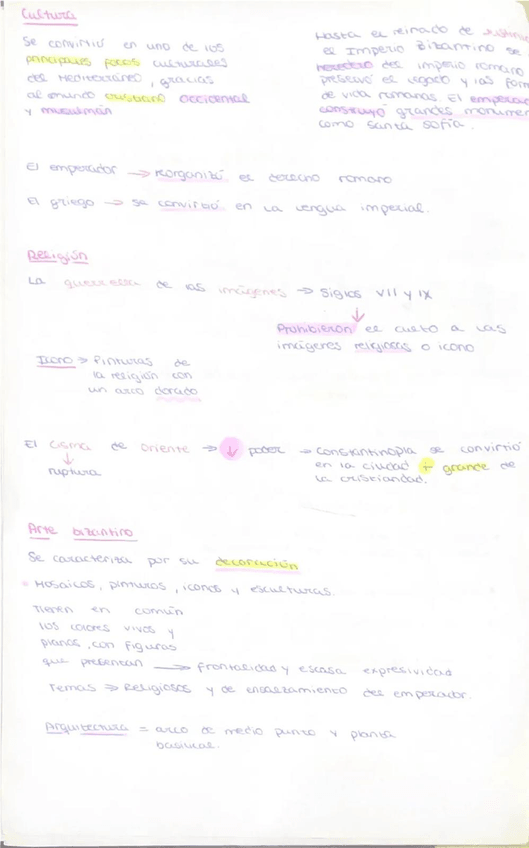 Cultura
Se convirtió en uno de los
principales focos culturales
del Mediterráneo, gracias
al mundo cristiano occidental
y musulmán
Hasta el reinado de
el Imperio Bizantino se
heredero del imperio romano
preservó el legado y las
de vida romanas. El
construyó grandes
como Santa Sofía.
El emperador → reorganizó el derecho romano
El griego → se convirtió en la lengua imperial.
Religión
La querella de las imágenes → siglos VII y IX
↓
Prohibieron el culto a las
imágenes religiosas o icono
Icono → Pinturas de
la religión con
un arco dorado
El cisma de oriente → ↓ poder → Constantinopla se convirtió
↓ en la ciudad + grande de
ruptura la cristiandad.
Arte bizantino
Se caracteriza por su decoración
• Mosaicos, pinturas, iconos y esculturas.
Tienen en común
los colores vivos y
planos, con figuras
que presentan → frontalidad y escasa expresividad
Temas → Religiosos y de ensalzamiento del emperador.
Arquitectura = arco de medio punto y planta
basilical.